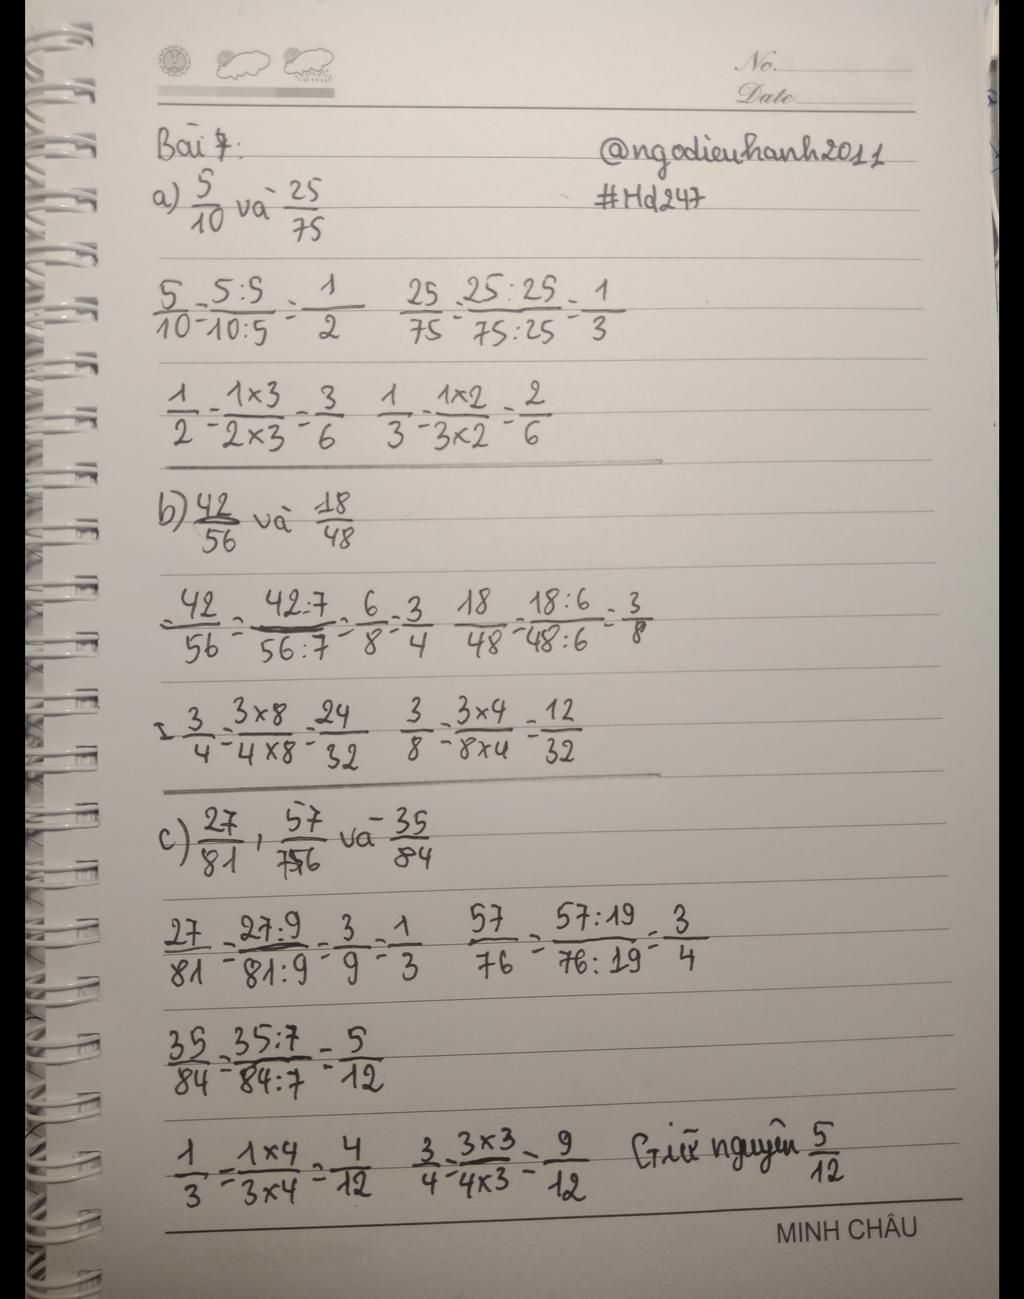 No.
Date
Bài 7:
@ngodieuhanh2011
#Hd247
a) 5/10 và 25/75
5/10 = 5:5/10:5 = 1/2 25/75 = 25:25/75:25 = 1/3
1/2 = 1×3/2×3 = 3/6 1/3 = 1×2/3×2 = 2/6
b) 42/56 và 18/48
42/56 = 42:7/56:7 = 6/8 = 3/4 18/48 = 18:6/48:6 = 3/8
3/4 = 3×8/4×8 = 24/32 3/8 = 3×4/8×4 = 12/32
c) 27/81, 57/76 và 35/84
27/81 = 27:9/81:9 = 3/9 = 1/3 57/76 = 57:19/76:19 = 3/4
35/84 = 35:7/84:7 = 5/12
1/3 = 1×4/3×4 = 4/12 3/4 = 3×3/4×3 = 9/12 Giữ nguyên 5/12
MINH CHÂU